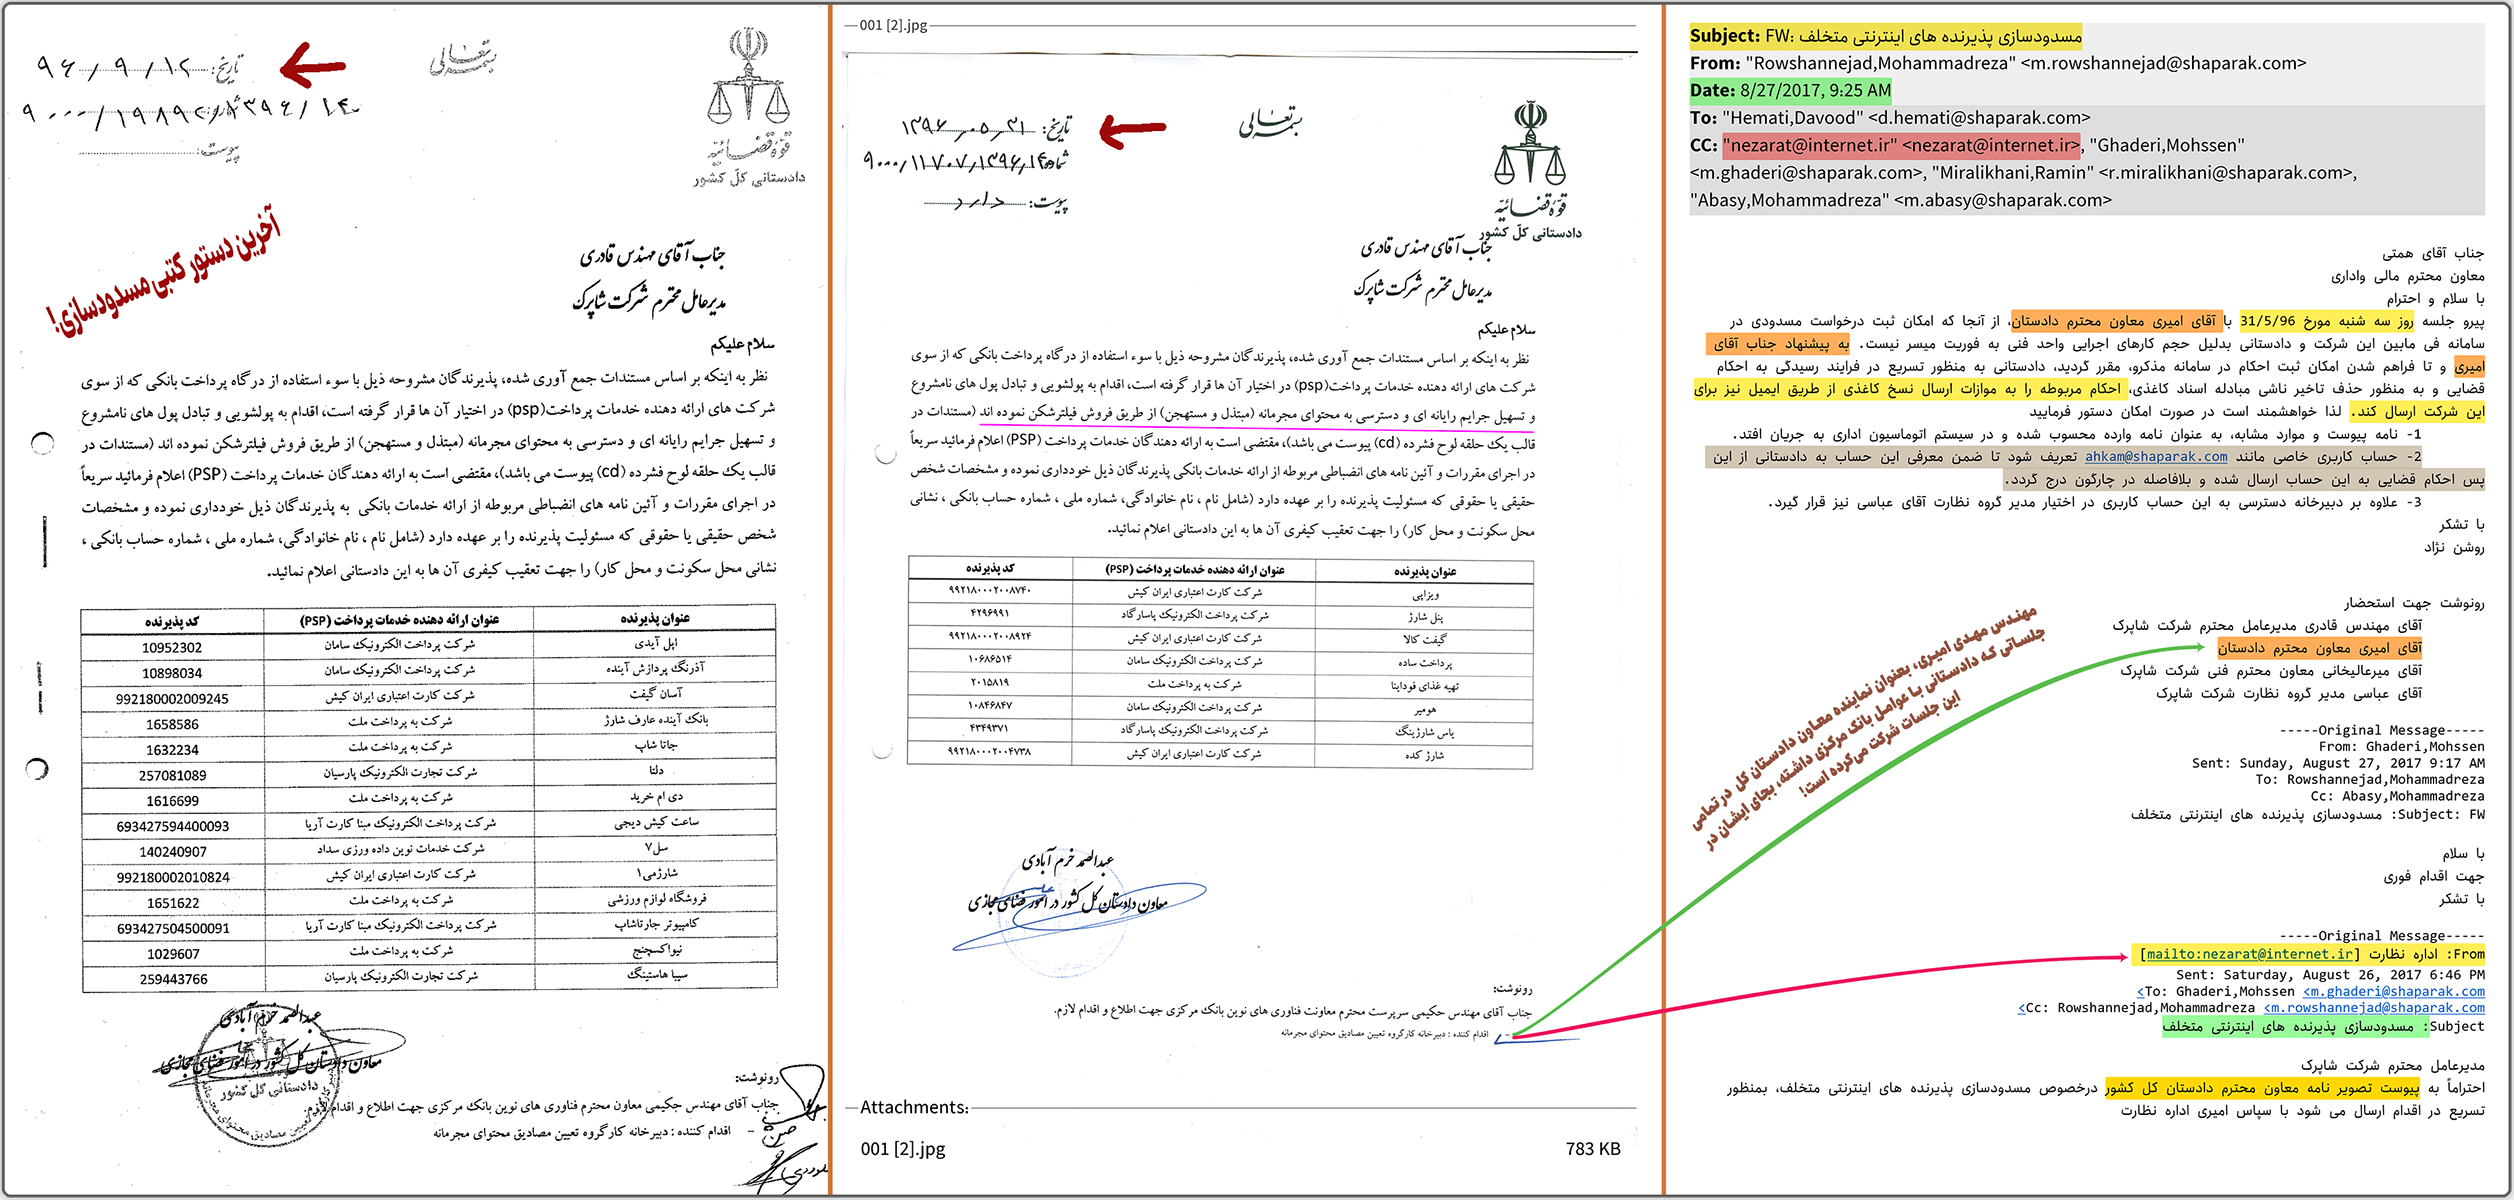 بسمه تعالی
تاریخ: ۹۶/۹/۱۲
۹۰۰۰/۱۹۸۹۲/۱۳۹۶/۱۴۰
پیوست:
قوّه قضائیّه
دادستانی کلّ کشور
آخرین دستور کتبی مسدودسازی!
جناب آقای مهندس قادری
مدیرعامل محترم شرکت شاپرک
سلام علیکم
نظر به اینکه بر اساس مستندات جمع آوری شده، پذیرندگان مشروحه ذیل با سوء استفاده از درگاه پرداخت بانکی که از سوی
شرکت های ارائه دهنده خدمات پرداخت(psp) در اختیار آن ها قرار گرفته است، اقدام به پولشویی و تبادل پول های نامشروع
و تسهیل جرایم رایانه ای و دسترسی به محتوای مجرمانه (مبتذل و مستهجن) از طریق فروش فیلترشکن نموده اند (مستندات در
قالب یک حلقه لوح فشرده (cd) پیوست می باشد)، مقتضی است به ارائه دهندگان خدمات پرداخت (PSP) اعلام فرمائید سریعاً
در اجرای مقررات و آئین نامه های انضباطی مربوطه از ارائه خدمات بانکی به پذیرندگان ذیل خودداری نموده و مشخصات
شخص حقیقی یا حقوقی که مسئولیت پذیرنده را بر عهده دارد (شامل نام ، نام خانوادگی، شماره ملی ، شماره حساب بانکی ،
نشانی محل سکونت و محل کار) را جهت تعقیب کیفری آن ها به این دادستانی اعلام نمائید.
عنوان پذیرنده عنوان ارائه دهنده خدمات پرداخت (PSP) کد پذیرنده
اپل آیدی شرکت پرداخت الکترونیک سامان 10952302
آذرنگ پردازش آینده شرکت پرداخت الکترونیک سامان 10898034
آسان گیفت شرکت کارت اعتباری ایران کیش 992180002009245
بانک آینده عارف شارژ شرکت به پرداخت ملت 1658586
جاتا شاپ شرکت به پرداخت ملت 1632234
دلتا شرکت تجارت الکترونیک پارسیان 257081089
دی ام خرید شرکت به پرداخت ملت 1616699
ساعت کیش دیجی شرکت پرداخت الکترونیک مبنا کارت آریا 693427594400093
سل۷ شرکت خدمات نوین داده ورزی سداد 140240907
شارژمی۱ شرکت کارت اعتباری ایران کیش 992180002010824
فروشگاه لوازم ورزشی شرکت به پرداخت ملت 1651622
کامپیوتر جارتاشاپ شرکت پرداخت الکترونیک مبنا کارت آریا 693427504500091
نیواکسچنج شرکت به پرداخت ملت 1029607
سیبا هاستینگ شرکت تجارت الکترونیک پارسیان 259443766
عبدالصمد خرم آبادی
معاون دادستان کل کشور در امور فضای مجازی
دادستانی کل کشور
رونوشت:
جناب آقای مهندس حکیمی معاون محترم فناوری های نوین بانک مرکزی جهت اطلاع و اقدام لازم.
- اقدام کننده : دبیرخانه کارگروه تعیین مصادیق محتوای مجرمانه
001 [2].jpg
بسمه تعالی
تاریخ: ۱۳۹۶-۰۵-۳۱
شماره: ۹۰۰۰/۱۱۷۰۷/۱۳۹۶/۱۴۰
پیوست: دارد
قوّه قضائیّه
دادستانی کلّ کشور
جناب آقای مهندس قادری
مدیرعامل محترم شرکت شاپرک
سلام علیکم
نظر به اینکه بر اساس مستندات جمع آوری شده، پذیرندگان مشروحه ذیل با سوء استفاده از درگاه پرداخت بانکی که از سوی
شرکت های ارائه دهنده خدمات پرداخت(psp) در اختیار آن ها قرار گرفته است، اقدام به پولشویی و تبادل پول های نامشروع
و تسهیل جرایم رایانه ای و دسترسی به محتوای مجرمانه (مبتذل و مستهجن) از طریق فروش فیلترشکن نموده اند (مستندات در
قالب یک حلقه لوح فشرده (cd) پیوست می باشد)، مقتضی است به ارائه دهندگان خدمات پرداخت (PSP) اعلام فرمائید سریعاً
در اجرای مقررات و آئین نامه های انضباطی مربوطه از ارائه خدمات بانکی پذیرندگان ذیل خودداری نموده و مشخصات شخص
حقیقی یا حقوقی که مسئولیت پذیرنده را بر عهده دارد (شامل نام ، نام خانوادگی، شماره ملی ، شماره حساب بانکی ، نشانی
محل سکونت و محل کار) را جهت تعقیب کیفری آن ها به این دادستانی اعلام نمائید.
عنوان پذیرنده عنوان ارائه دهنده خدمات پرداخت (PSP) کد پذیرنده
ویزاپی شرکت کارت اعتباری ایران کیش ۹۹۲۱۸۰۰۰۲۰۰۸۷۴۰
پنل شارژ شرکت پرداخت الکترونیک پاسارگاد ۴۲۹۶۹۹۱
گیفت کالا شرکت کارت اعتباری ایران کیش ۹۹۲۱۸۰۰۰۲۰۰۸۹۲۴
پرداخت ساده شرکت پرداخت الکترونیک سامان ۱۰۶۸۶۵۱۴
تهیه غذای فوداینا شرکت به پرداخت ملت ۲۰۱۵۸۱۹
هومیر شرکت پرداخت الکترونیک سامان ۱۰۸۴۶۸۴۷
پاس شارژینگ شرکت پرداخت الکترونیک پاسارگاد ۴۳۴۹۳۷۱
شارژ کده شرکت کارت اعتباری ایران کیش ۹۹۲۱۸۰۰۰۲۰۰۴۷۳۸
عبدالصمد خرم آبادی
معاون دادستان کل کشور در امور فضای مجازی
رونوشت:
جناب آقای مهندس حکیمی سرپرست محترم معاونت فناوری های نوین بانک مرکزی جهت اطلاع و اقدام لازم.
- اقدام کننده : دبیرخانه کارگروه تعیین مصادیق محتوای مجرمانه
Attachments:
001 [2].jpg 783 KB
Subject: FW: مسدودسازی پذیرنده های اینترنتی متخلف
From: "Rowshannejad,Mohammadreza" <m.rowshannejad@shaparak.com>
Date: 8/27/2017, 9:25 AM
To: "Hemati,Davood" <d.hemati@shaparak.com>
CC: "nezarat@internet.ir" <nezarat@internet.ir>, "Ghaderi,Mohssen"
<m.ghaderi@shaparak.com>, "Miralikhani,Ramin" <r.miralikhani@shaparak.com>,
"Abasy,Mohammadreza" <m.abasy@shaparak.com>
جناب آقای همتی
معاون محترم مالی واداری
با سلام و احترام
پیرو جلسه روز سه شنبه مورخ 31/5/96 با آقای امیری معاون محترم دادستان، از آنجا که امکان ثبت درخواست مسدودی در
سامانه فی مابین این شرکت و دادستانی بدلیل حجم کارهای اجرایی واحد فنی به فوریت میسر نیست. به پیشنهاد جناب آقای
امیری و تا فراهم شدن امکان ثبت احکام در سامانه مذکور، مقرر گردید، دادستانی به منظور تسریع در فرایند رسیدگی به احکام
قضایی و به منظور حذف تاخیر ناشی مبادله اسناد کاغذی، احکام مربوطه را به موازات ارسال نسخ کاغذی از طریق ایمیل نیز برای
این شرکت ارسال کند. لذا خواهشمند است در صورت امکان دستور فرمایید
1- نامه پیوست و موارد مشابه، به عنوان نامه وارده محسوب شده و در سیستم اتوماسیون اداری به جریان افتد.
2- حساب کاربری خاصی مانند ahkam@shaparak.com تعریف شود تا ضمن معرفی این حساب به دادستانی از این
پس احکام قضایی به این حساب ارسال شده و بلافاصله در چارگون درج گردد.
3- علاوه بر دبیرخانه دسترسی به این حساب کاربری در اختیار مدیر گروه نظارت آقای عباسی نیز قرار گیرد.
با تشکر
روشن نژاد
رونوشت جهت استحضار
آقای مهندس قادری مدیرعامل محترم شرکت شاپرک
آقای امیری معاون محترم دادستان
آقای میرعالیخانی معاون محترم فنی شرکت شاپرک
آقای عباسی مدیر گروه نظارت شرکت شاپرک
مهندس مهدی امیری، بعنوان نماینده معاون دادستان کل در تمامی
جلساتی که دادستانی با عوامل بانک مرکزی داشته، بجای ایشان در
این جلسات شرکت می‌کرده است!
-----Original Message-----
From: Ghaderi,Mohssen
Sent: Sunday, August 27, 2017 9:17 AM
To: Rowshannejad,Mohammadreza
Cc: Abasy,Mohammadreza
Subject: FW: مسدودسازی پذیرنده های اینترنتی متخلف
با سلام
جهت اقدام فوری
با تشکر
-----Original Message-----
From: اداره نظارت [mailto:nezarat@internet.ir]
Sent: Saturday, August 26, 2017 6:46 PM
To: Ghaderi,Mohssen <m.ghaderi@shaparak.com>
Cc: Rowshannejad,Mohammadreza <m.rowshannejad@shaparak.com>
Subject: مسدودسازی پذیرنده های اینترنتی متخلف
مدیرعامل محترم شرکت شاپرک
احتراماً به پیوست تصویر نامه معاون محترم دادستان کل کشور درخصوص مسدودسازی پذیرنده های اینترنتی متخلف، بمنظور
تسریع در اقدام ارسال می شود با سپاس امیری اداره نظارت